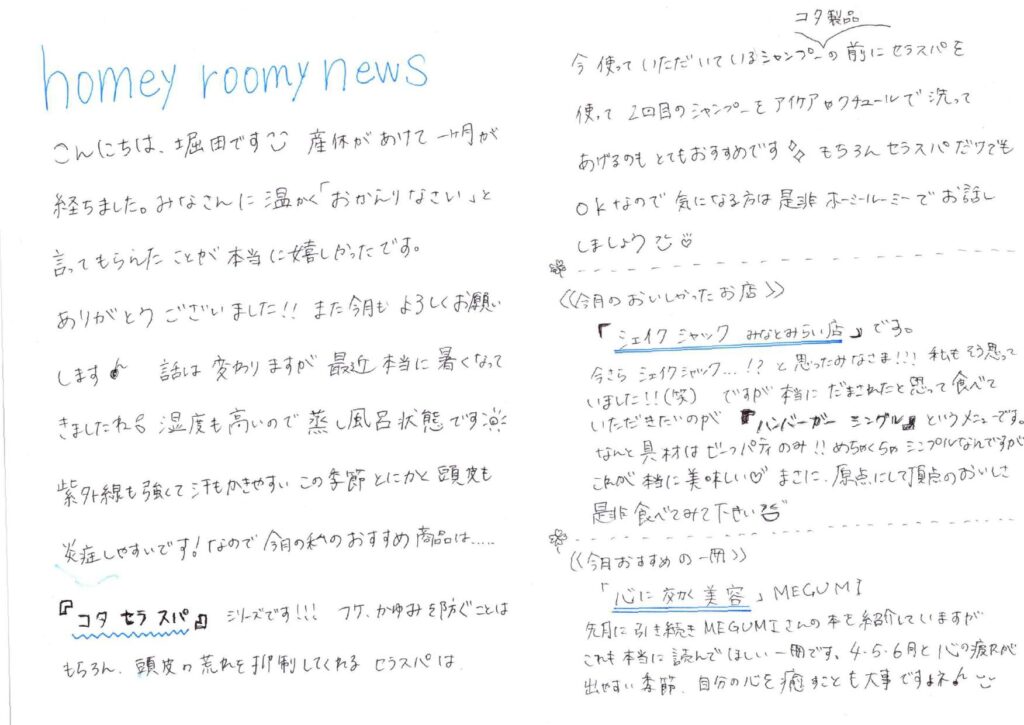 homey roomy news
こんにちは、堀田です 産休があけて一ヶ月が
経ちました。みなさんに温かく「おかえりなさい」と
言ってもらえたことが本当に嬉しかったです。
ありがとうございました!! また今月もよろしくお願い
します♪ 話は変わりますが 最近本当に暑くなって
きましたね 湿度も高いので蒸し風呂状態です
紫外線も強くて汗もかきやすいこの季節とにかく頭皮も
炎症しやすいです!なので今月の私のおすすめ商品は.....
『コタ セラ スパ』 シリーズです!!! フケ、かゆみを防ぐことは
もちろん、頭皮の荒れを抑制してくれる セラスパは
コタ製品
今使っていただいているシャンプーの前にセラスパを
使って 2回目のシャンプーを アイケア orクチュールで洗って
あげるのもとてもおすすめです もちろんセラスパだけでも
okなので気になる方は是非ホーミールーミーでお話し
しましょう ♡
《今月のおいしかったお店》
「シェイク シャック みなとみらい店」です。
今さら シェイクシャック...!? と思ったみなさま!!! 私もそう思って
いました!!(笑) ですが本当にだまされたと思って食べて
いただきたいのが 『ハンバーガー シングル』というメニューです。
なんと具材はビーフパティのみ!! めちゃくちゃシンプルなんですが
これが本当に美味しい♡ まさに、原点にして頂点のおいしさ
是非食べてみて下さい
《今月おすすめの一冊》
「心に効く美容」MEGUMI
先月に引き続きMEGUMIさんの本を紹介していますが
これも本当に読んでほしい一冊です。4・5・6月と心の疲れが
出やすい季節、自分の心を癒すことも大事ですよネ♪